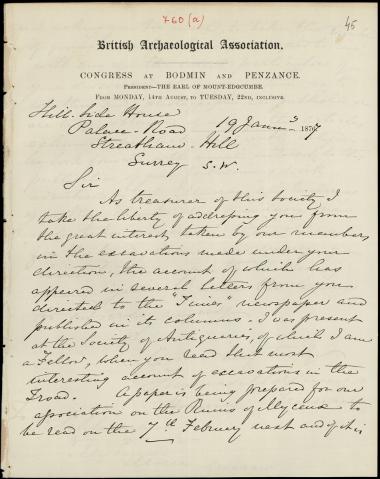 760(a)
45
British Archaeological Association.
CONGRESS AT BODMIN AND PENZANCE.
PRESIDENT—THE EARL OF MOUNT-EDGCUMBE.
FROM MONDAY, 14TH AUGUST, TO TUESDAY, 22ND, INCLUSIVE.
Hill-side House
Palace-Road 19 1877
Streatham-Hill
Surrey S.W.
Sir
As treasurer of this Society I
take the liberty of addressing you from
the great interest taken by our members
in the excavations made under your
direction, the account of which has
appeared in several letters from you
directed to the "Times" newspaper and
published in its columns. I was present
at the Society of Antiquaries, of which I am
a Fellow, when you read that most
interesting account of excavations in the
Troad. A paper is being prepared for our
association on the Ruins of Mycenæ to
be read on the 7th February next and if it is